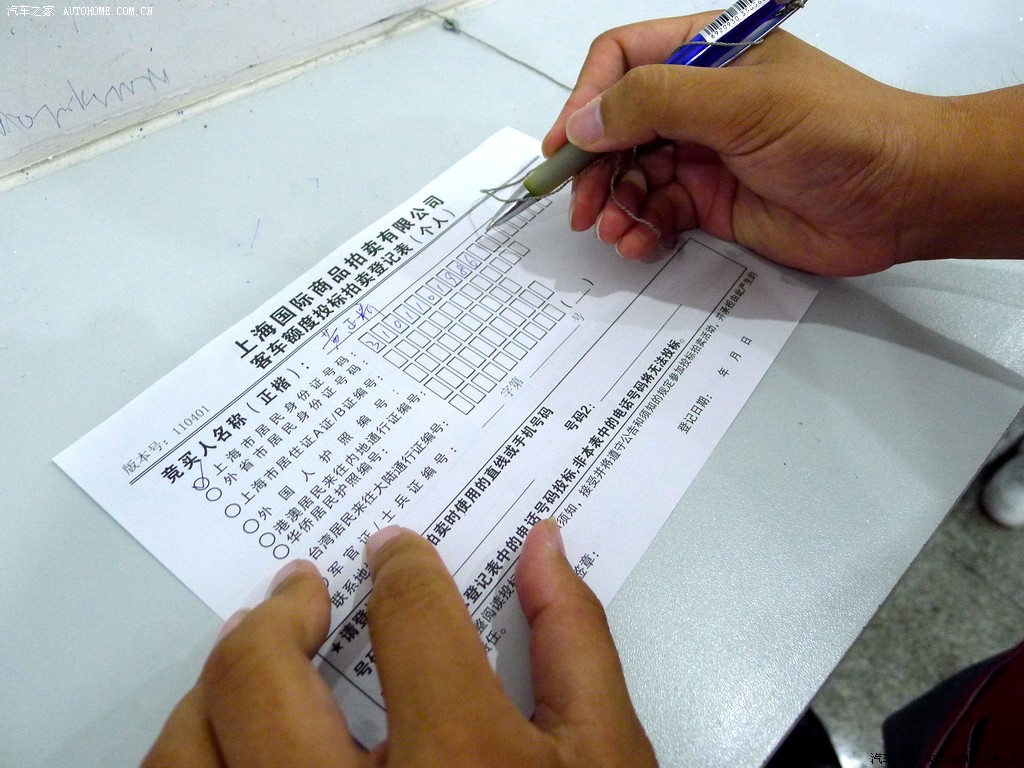 汽车之家 AUTOHOME.COM.CN
上海国际商品拍卖有限公司
客车额度投标拍卖登记表（个人）
版本号：110401
竞买人名称（正楷）：
上海市居民身份证号码：
外省市居民身份证号码：
上海市居住证A证/B证编号：
外国人护照编号：
港澳居民来往内地通行证编号：
华侨居民护照编号：
台湾居民来往大陆通行证编号：
军官证/士兵证编号： 字第 号
联系地
拍卖时使用的直线或手机号码
号码2：
登记表中的电话号码投标,非本表中的电话号码将无法投标。
须知，接受并将遵守公告和须知的规定参加投标拍卖活动，并承担由此产生的
责任。
签章：
登记日期： 年 月 日